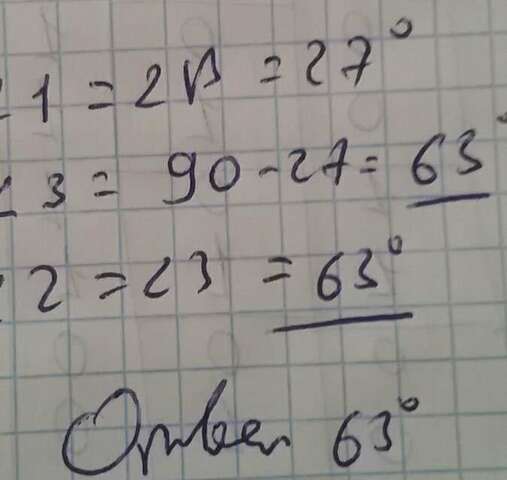 ∠1 = ∠B = 27°
∠3 = 90 - 27 = 63°
∠2 = ∠3 = 63°
Ответ 63°